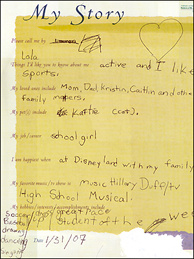 My Story
Please call me by
Lola
Things I'd like you to know about me active and I like
sports.
My loved ones include Mom, Dad, Kristin, Caitlin and other
family
My pet(s) include
My job/career school girl
I am happiest when at Disneyland with my family
My favorite music/tv show is Music Hillary Duff/tv
High School Musical.
My hobbies/interests/accomplishments include
Soccer great race
student of the week
drawing
dancing
singing
Date 1/31/07